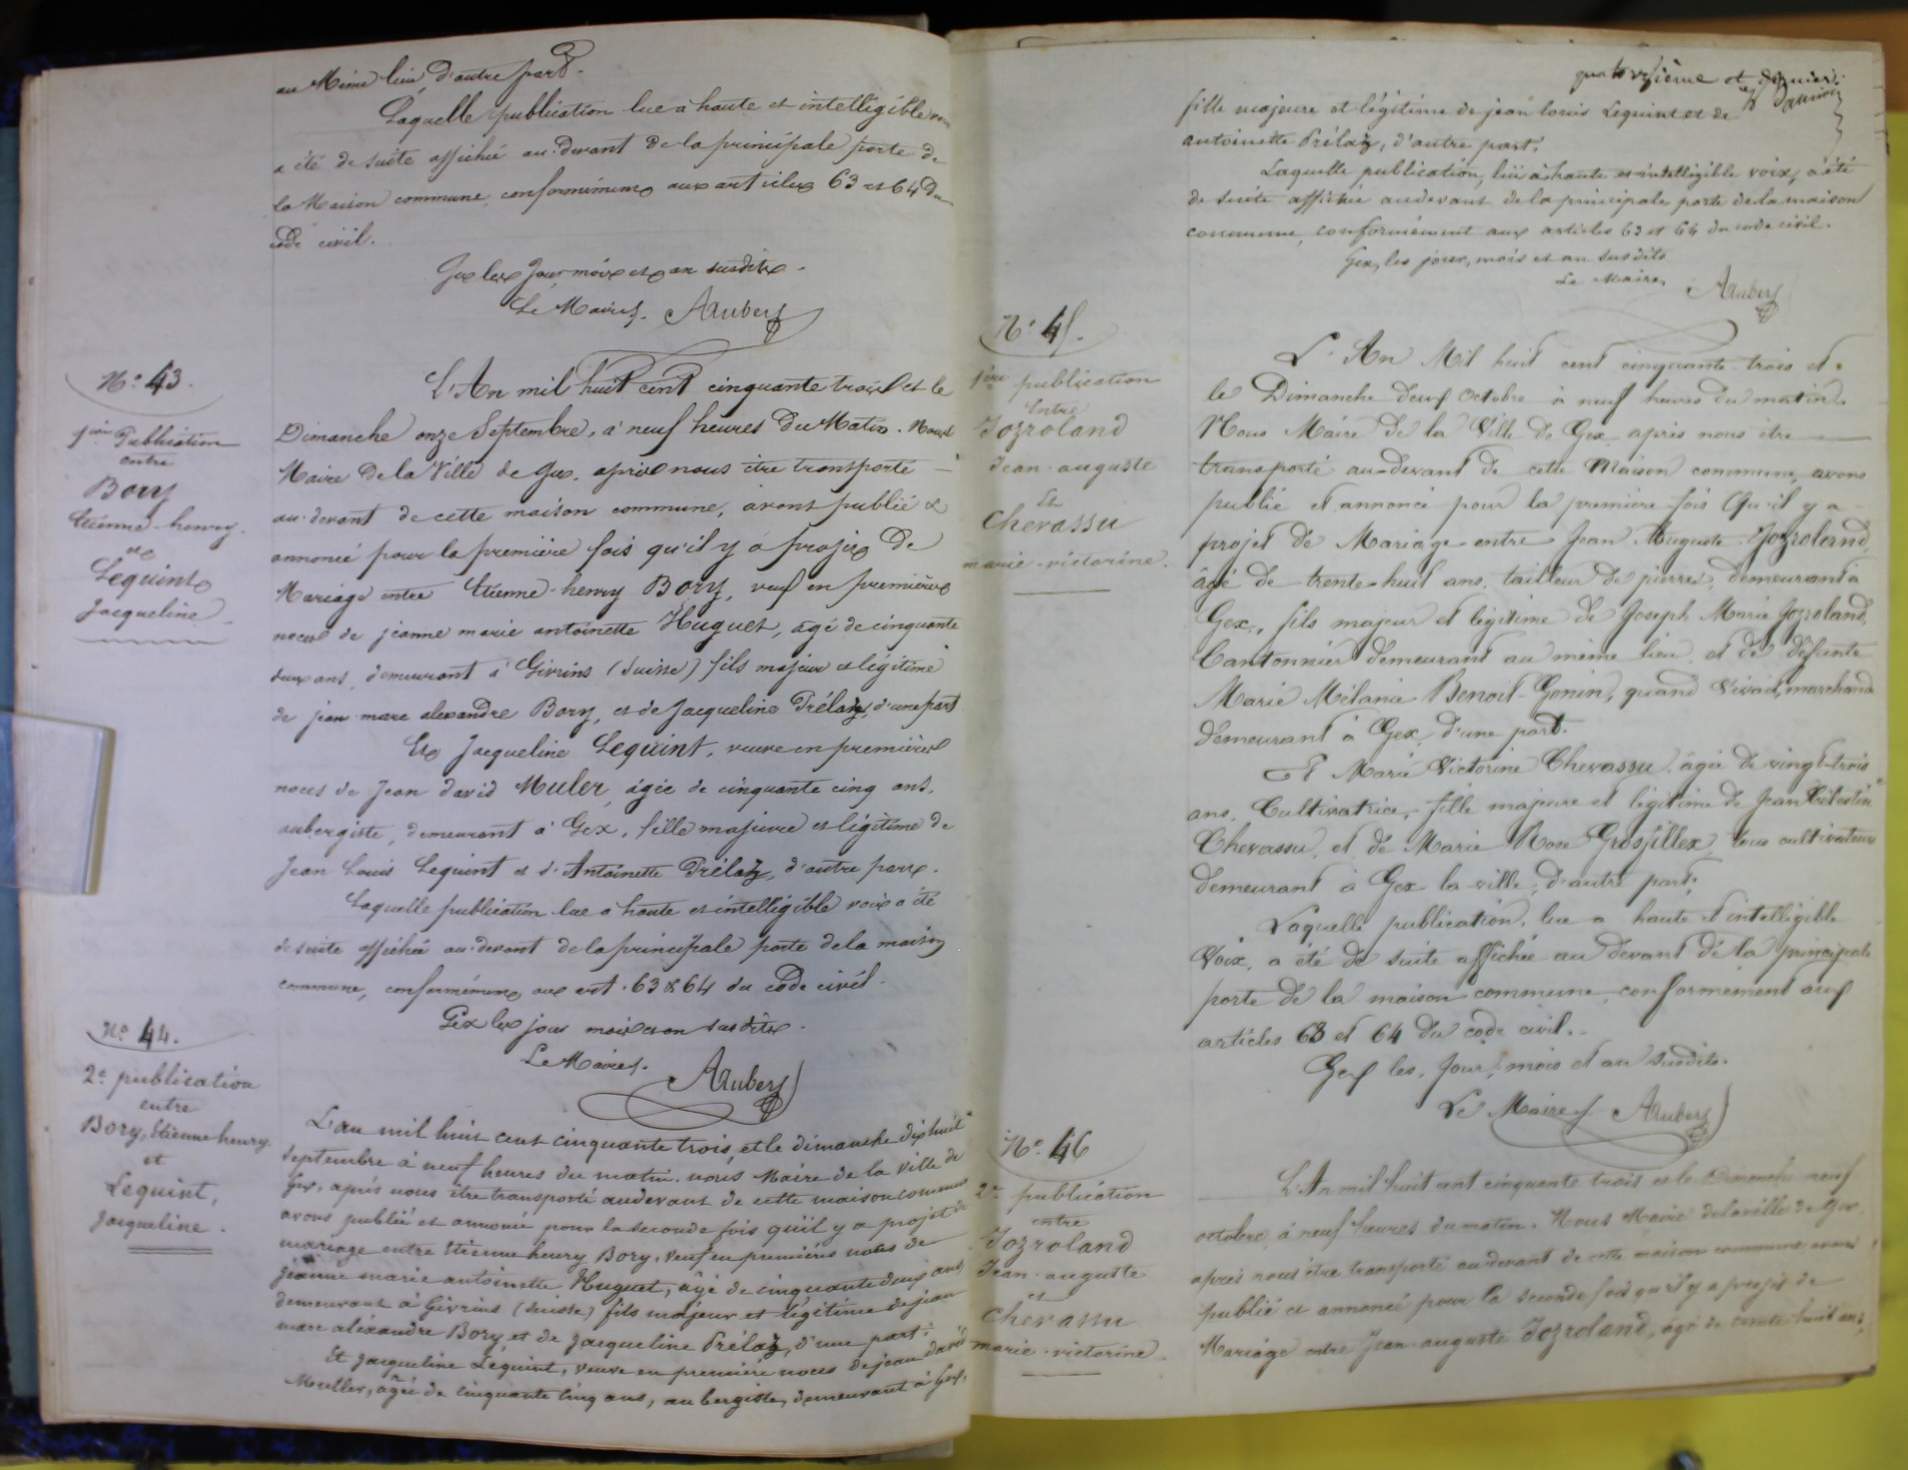 au Même lieu, d'autre part.
Laquelle publication lue à haute et intelligible
a été de suite affichée au-devant de la principale porte de
la Maison commune, conformément aux articles 63 et 64 du
code civil.
Gex les Jour, mois et an susdits.
Le Maire. AAubery
N.o 43.
1ère Publication
entre
Bory
Etienne-henry.
et
Lequint
Jacqueline.
L'An mil huit cent cinquante trois et le
Dimanche onze Septembre, à neuf heures du Matin. Nous
Maire de la Ville de Gex, après nous être transporté
au-devant de cette maison commune, avons publié &
annoncé pour la première fois qu'il y a projet de
Mariage entre Etienne-henry Bory, veuf en premières
noces de jeanne marie antoinette Huguet, agé de cinquante
deux ans, demeurant à Givrins (Suisse) fils majeur et légitime
de jean marc alexandre Bory, et de Jacqueline Prélaz, d'une part
Et Jacqueline Lequint, veuve en premières
noces de Jean david Muler, agée de cinquante cinq ans,
aubergiste, demeurant à Gex, fille majeure et légitime de
Jean Louis Lequint et d'Antoinette Prélaz, d'autre part.
Laquelle publication lue à haute et intelligible voix a été
de suite affichée au-devant de la principale porte de la maison
commune, conformément aux art. 63 & 64 du Code civil.
Gex les jour mois et an susdits.
Le Maire. AAubery
N.o 44.
2e publication
entre
Bory, Etienne henry.
et
Lequint,
Jacqueline.
L'an mil huit cent cinquante trois, et le dimanche dix huit
septembre à neuf heures du matin, nous Maire de la ville de
Gex, après nous être transporté audevant de cette maison commune
avons publié et annoncé pour la seconde fois qu'il y a projet de
mariage entre Etienne henry Bory, veuf en premières noces de
jeanne marie antoinette Huguet, âgé de cinquante deux ans
demeurant à Givrins (Suisse) fils majeur et légitime de jean
marc aléxandre Bory, et de Jacqueline Prélaz, d'une part.
Et Jacqueline Lequint, veuve en première noces de jean david
Muller, âgée de cinquante cinq ans, aubergiste, demeurant à Gex,
quatorzième et dernier
fille majeure et légitime de jean louis Lequint et de
antoinette Prélaz, d'autre part.
Laquelle publication, lue à haute et intelligible voix, a été
de suite affichée audevant de la principale porte de la maison
commune, conformément aux articles 63 et 64 du code civil.
Gex, les jour, mois et an susdits
Le Maire, AAubery
N.o 45.
1ère publication
Entre
Jozroland
Jean-auguste
Et
Chevassu
marie-victorine.
L'An Mil huit cent cinquante-trois et
le Dimanche deux Octobre à neuf heures du matin.
Nous Maire de la Ville de Gex après nous être
transporté au-devant de cette Maison commune, avons
publié et annoncé pour la première fois Qu'il y a
projet de Mariage entre Jean Auguste Jozroland,
âgé de trente-huit ans, tailleur de pierres, demeurant à
Gex, fils majeur et légitime de Joseph Marie Jozroland,
Cantonnier demeurant au même lieu, et de défunte
Marie Mélanie Benoit-Gonin, quand vivait, marchande
demeurant à Gex, d'une part.
Et Marie Victorine Chevassu, âgée de vingt-trois
ans, Cultivatrice, fille majeure et légitime de Jean Célestin
Chevassu, et de Marie Rose Grosfillex, tous cultivateurs
demeurant à Gex la ville, d'autre part;
Laquelle publication, lue à haute et intelligible
Voix, a été de suite affichée au devant de la principale
porte de la maison commune, conformément aux
articles 63 et 64 du code civil.
Gex les, Jour, mois et an susdits.
Le Maire AAubery
N.o 46
2e publication
entre
Jozroland
Jean-auguste
et
Chevassu
marie-victorine.
L'An mil huit cent cinquante trois et le Dimanche neuf
octobre à neuf heures du matin. Nous Maire de la ville de Gex,
après nous être transporté au devant de cette maison commune avons
publié et annoncé pour la seconde fois qu'il y a projet de
Mariage entre Jean-auguste Jozroland, agé de trente huit ans,